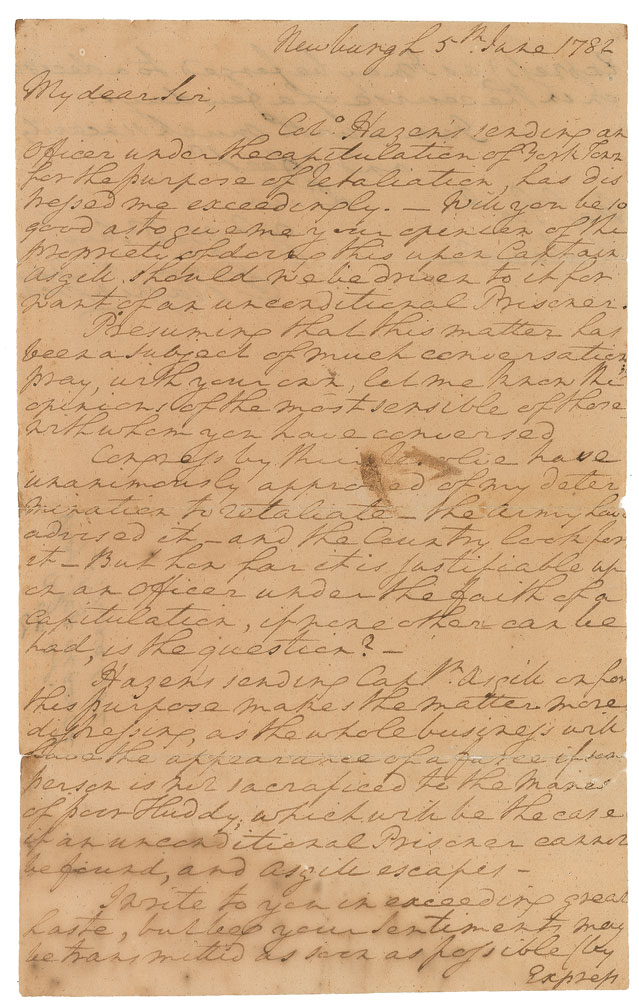 Newburgh 5th. June 1782
My dear Sir,
Colo. Hazen's sending an
Officer under the capitulation of York Town
for the purpose of retaliation, has dis
tressed me exceedingly. — Will you be so
good as to give me your opinion of the
propriety of doing this upon Captain
Asgill should we be driven to it for
want of an unconditional Prisoner.
Presuming that this matter has
been a subject of much conversation
pray, with your own, let me know the
opinions of the most sensible of those
with whom you have conversed
Congress by their resolve have
unanimously approved of my deter
mination to retaliate — the army have
advised it — and the Country look for
it — But how far it is justifiable up
on an Officer under the faith of a
capitulation, if none other can be
had, is the question? —
Hazen's sending Captn. Asgill on for
this purpose makes the matter more
distressing, as the whole business will
have the appearance of a farce if some
person is not sacraficed to the manes
of poor Huddy; which will be the case
if an unconditional Prisoner cannot
be found, and Asgill escapes —
I write to you in exceeding great
haste, but beg your Sentiments may
be transmitted as soon as possible (by
Express